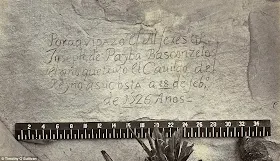 Por aqui pazo el Alferes Dn
Joseph de Payba Basconzelos
el año que trujo el Cavildo del
Reyno a su costa a 18 de Feb
de 1726 Años
2 4 6 8 10 12 14 16 18 20 22 24 26 28 30 32 34
© Timothy O'Sullivan